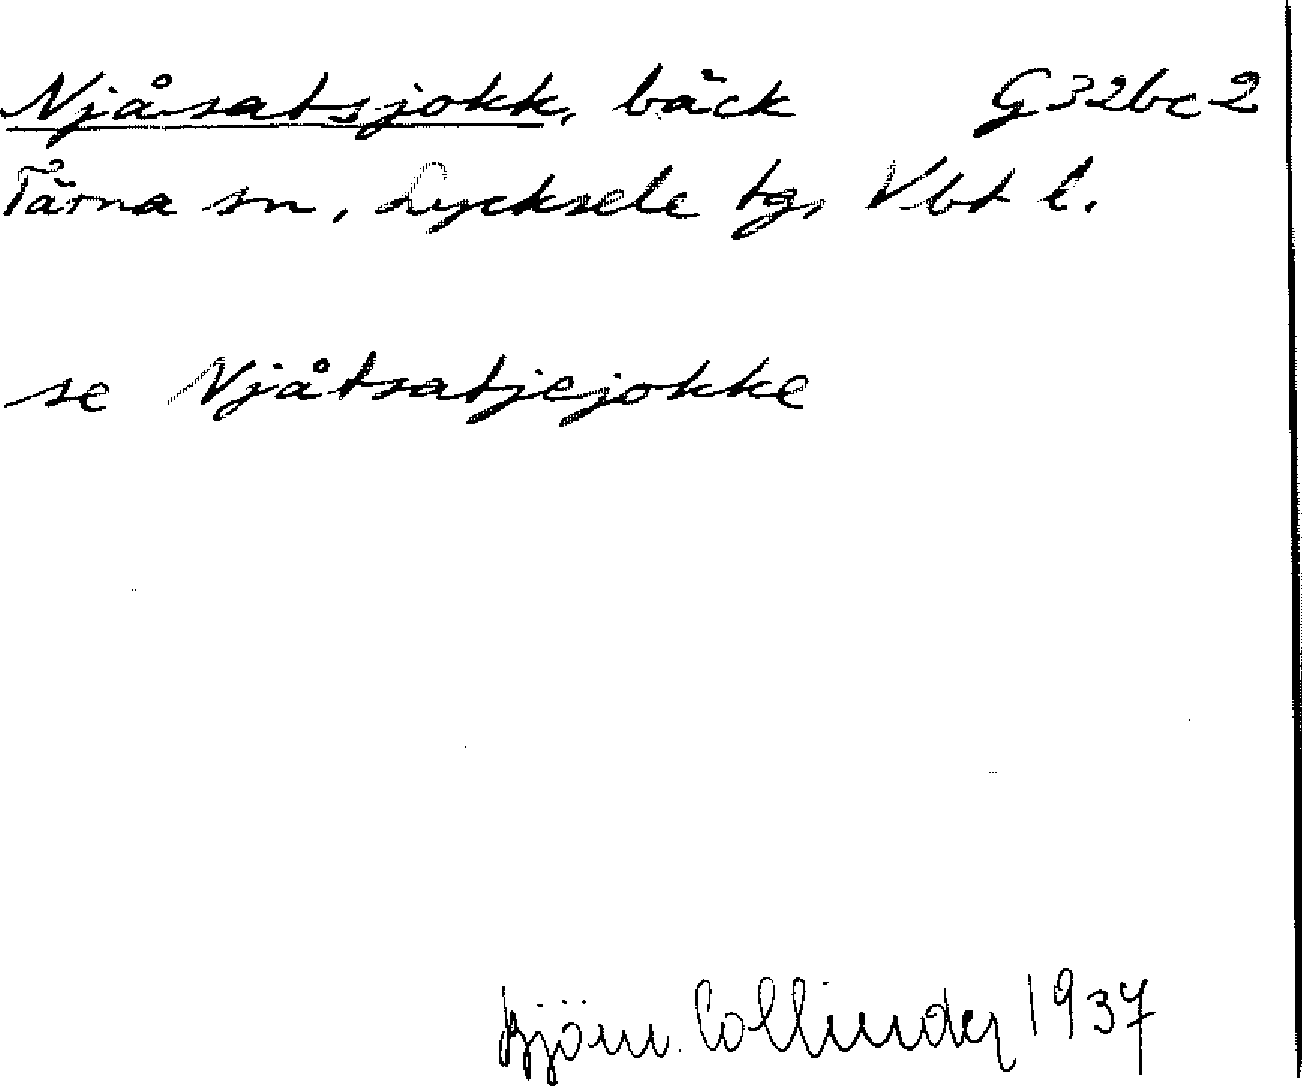 Njåsatsjokk, bäck G32bc2
Tärna sn, Lycksele tg, Vbt l.
se Njåtsatjejokke
Björn Collinder 1937